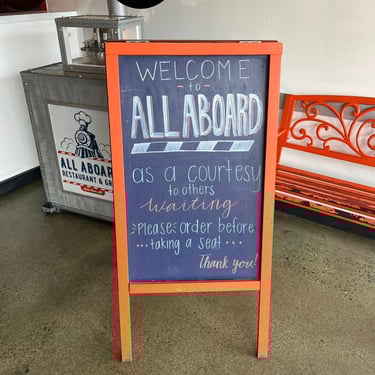 WELCOME
to
ALL ABOARD
as a courtesy
to others
waiting
Please order before
taking a seat...
Thank you!
ALL ABOARD
RESTAURANT & GR